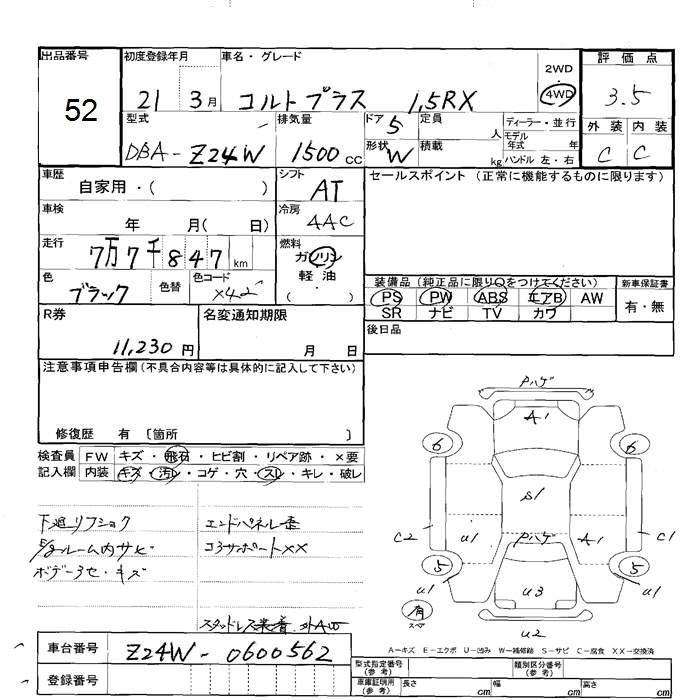 出品番号
52
初度登録年月
21 3月
車名・グレード
コルトプラス 1,5RX
2WD
・
4WD
評価点
3.5
型式
DBA-Z24W
排気量
1500cc
ドア 5
形状 W
定員 人
積載 kg
ディーラー・並行
モデル年式 年
ハンドル 左・右
外装 内装
C C
車歴
自家用・( )
シフト
AT
セールスポイント (正常に機能するものに限ります)
車検
年 月( 日)
冷房
AAC
走行
7万7千847km
燃料
ガソリン
軽油
( )
色
ブラック
色替
色コード
X42
装備品 (純正品に限り○をつけてください)
PS PW ABS エアB AW
SR ナビ TV カワ
新車保証書
有・無
R券
11,230円
名変通知期限
月 日
後日品
注意事項申告欄(不具合内容等は具体的に記入して下さい)
修復歴 有 〔箇所 〕
検査員記入欄
FW キズ・飛石・ヒビ割・リペア跡・×要
内装 キズ・汚レ・コゲ・穴・スレ・キレ・破レ
ボデー3セ・キズ
エンドパネル歪
コアサポートXX
Pハゲ
A1
6 6
S1
C2 U1 Pハゲ A1 C1
5 5
U1 U3 U1
U2
A-キズ E-エクボ U-凹み W-補修跡 S-サビ C-腐食 XX-交換済
車台番号
Z24W-0600562
登録番号
型式指定番号(参考)
類別区分番号(参考)
車庫証明用(参考)
長さ cm 幅 cm 高さ cm